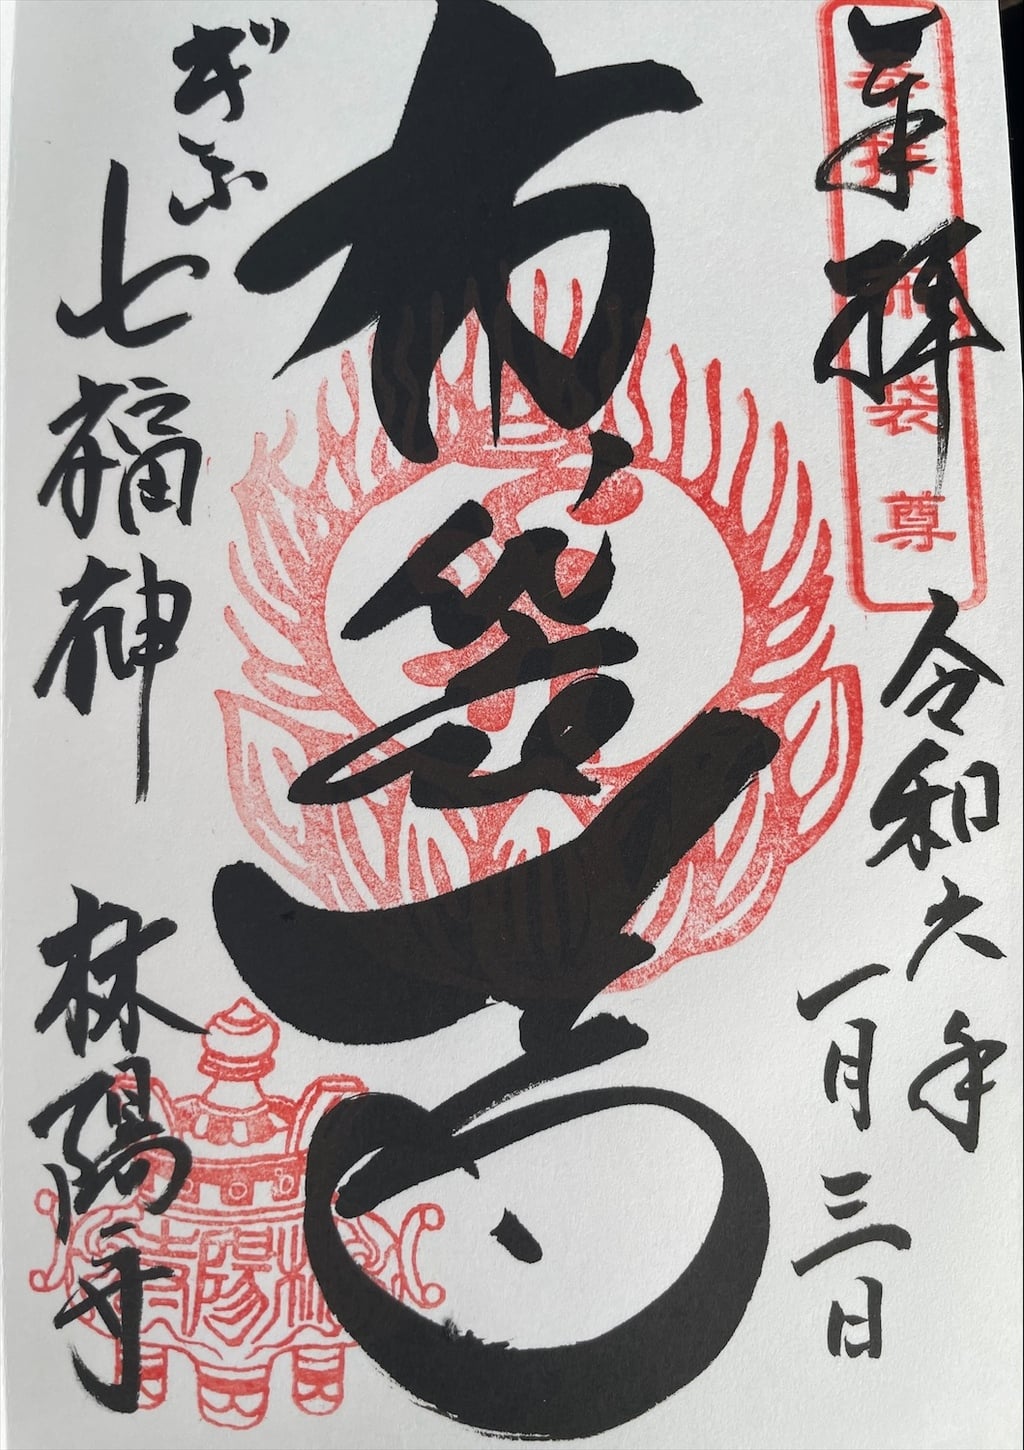 奉拝
令和六年
一月三日
布袋尊
ぎふ
七福神
林陽寺
奉拝 布袋尊
林陽寺